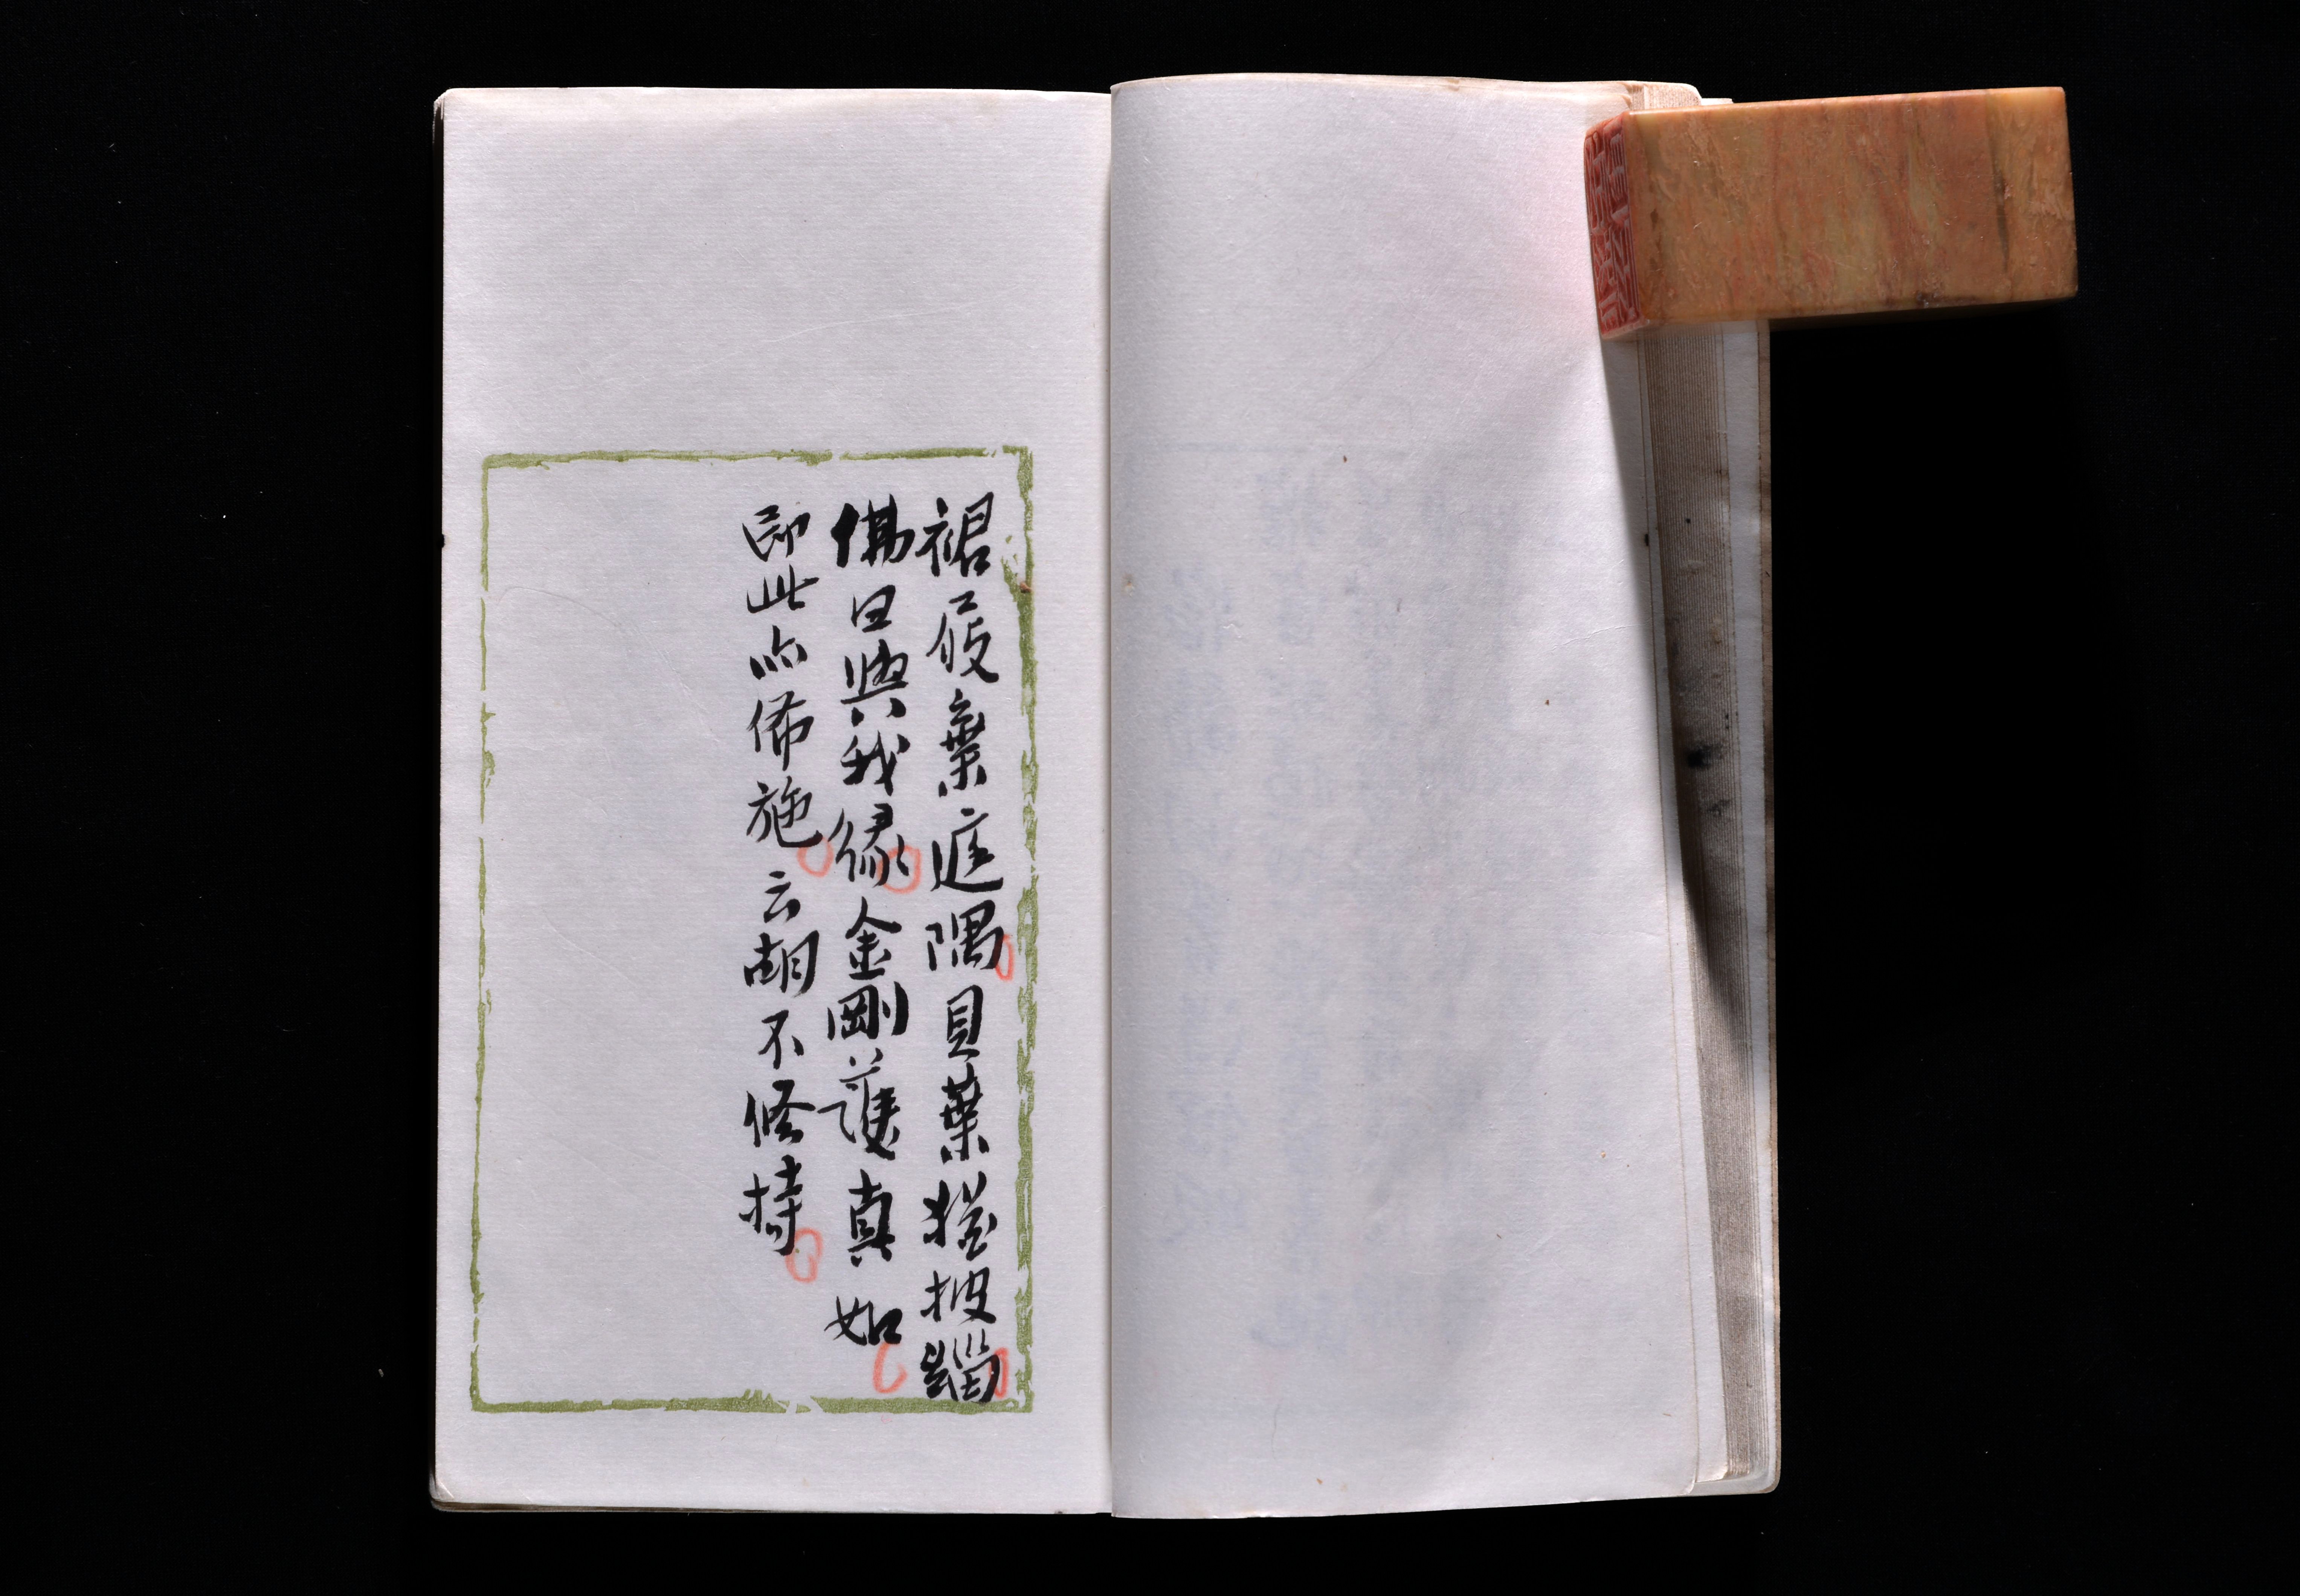 裙屐棄庭隅貝葉猶披緇
佛曰與我緣金剛護真如
即此亦佈施云胡不修持